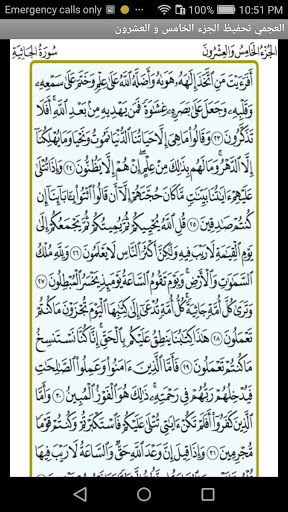 Emergency calls only 10:51 PM
العجمي تحفيظ الجزء الخامس و العشرون
الجُزْءُ الخَامِسُ وَالعِشْرُونَ سُورَةُ الجَاثِيَةِ
أَفَرَءَيْتَ مَنِ ٱتَّخَذَ إِلَٰهَهُۥ هَوَىٰهُ وَأَضَلَّهُ ٱللَّهُ عَلَىٰ عِلْمٍ وَخَتَمَ عَلَىٰ سَمْعِهِۦ
وَقَلْبِهِۦ وَجَعَلَ عَلَىٰ بَصَرِهِۦ غِشَٰوَةً فَمَن يَهْدِيهِ مِنۢ بَعْدِ ٱللَّهِ أَفَلَا
تَذَكَّرُونَ ٢٣ وَقَالُوا۟ مَا هِىَ إِلَّا حَيَاتُنَا ٱلدُّنْيَا نَمُوتُ وَنَحْيَا وَمَا يُهْلِكُنَآ
إِلَّا ٱلدَّهْرُ وَمَا لَهُم بِذَٰلِكَ مِنْ عِلْمٍ إِنْ هُمْ إِلَّا يَظُنُّونَ ٢٤ وَإِذَا تُتْلَىٰ
عَلَيْهِمْ ءَايَٰتُنَا بَيِّنَٰتٍ مَّا كَانَ حُجَّتَهُمْ إِلَّآ أَن قَالُوا۟ ٱئْتُوا۟ بِـَٔابَآئِنَآ إِن
كُنتُمْ صَٰدِقِينَ ٢٥ قُلِ ٱللَّهُ يُحْيِيكُمْ ثُمَّ يُمِيتُكُمْ ثُمَّ يَجْمَعُكُمْ إِلَىٰ
يَوْمِ ٱلْقِيَٰمَةِ لَا رَيْبَ فِيهِ وَلَٰكِنَّ أَكْثَرَ ٱلنَّاسِ لَا يَعْلَمُونَ ٢٦ وَلِلَّهِ مُلْكُ
ٱلسَّمَٰوَٰتِ وَٱلْأَرْضِ وَيَوْمَ تَقُومُ ٱلسَّاعَةُ يَوْمَئِذٍ يَخْسَرُ ٱلْمُبْطِلُونَ ٢٧
وَتَرَىٰ كُلَّ أُمَّةٍ جَاثِيَةً كُلُّ أُمَّةٍ تُدْعَىٰٓ إِلَىٰ كِتَٰبِهَا ٱلْيَوْمَ تُجْزَوْنَ مَا كُنتُمْ
تَعْمَلُونَ ٢٨ هَٰذَا كِتَٰبُنَا يَنطِقُ عَلَيْكُم بِٱلْحَقِّ إِنَّا كُنَّا نَسْتَنسِخُ
مَا كُنتُمْ تَعْمَلُونَ ٢٩ فَأَمَّا ٱلَّذِينَ ءَامَنُوا۟ وَعَمِلُوا۟ ٱلصَّٰلِحَٰتِ
فَيُدْخِلُهُمْ رَبُّهُمْ فِى رَحْمَتِهِۦ ذَٰلِكَ هُوَ ٱلْفَوْزُ ٱلْمُبِينُ ٣٠ وَأَمَّا
ٱلَّذِينَ كَفَرُوٓا۟ أَفَلَمْ تَكُنْ ءَايَٰتِى تُتْلَىٰ عَلَيْكُمْ فَٱسْتَكْبَرْتُمْ وَكُنتُمْ قَوْمًا
مُّجْرِمِينَ ٣١ وَإِذَا قِيلَ إِنَّ وَعْدَ ٱللَّهِ حَقٌّ وَٱلسَّاعَةُ لَا رَيْبَ فِيهَا